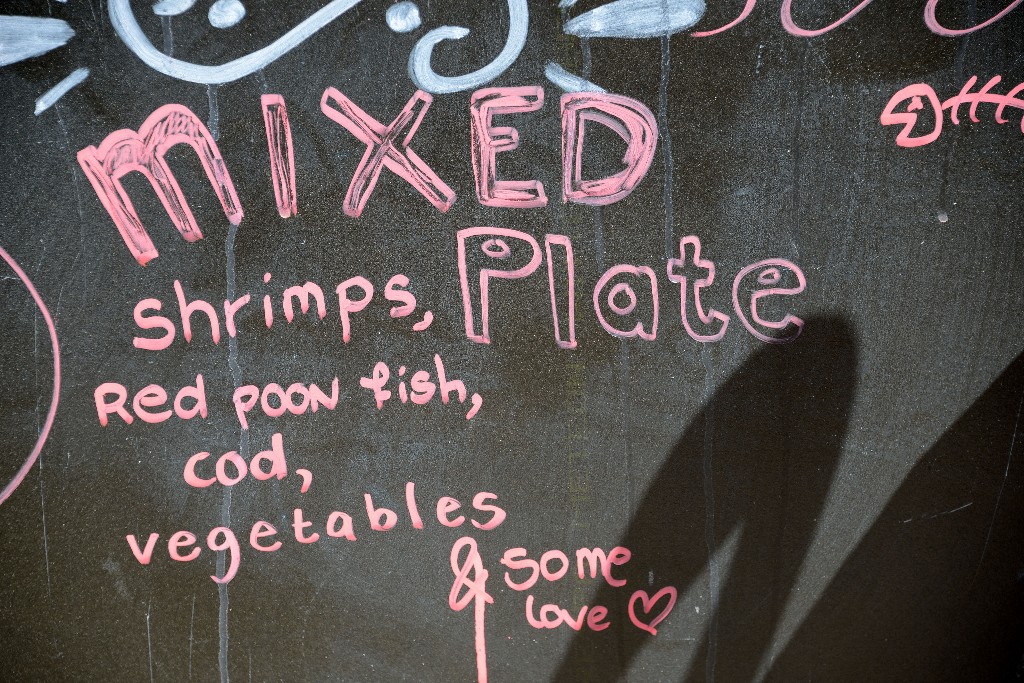 MIXED
Plate
shrimps,
Red POON fish,
cod,
vegetables
& some
love